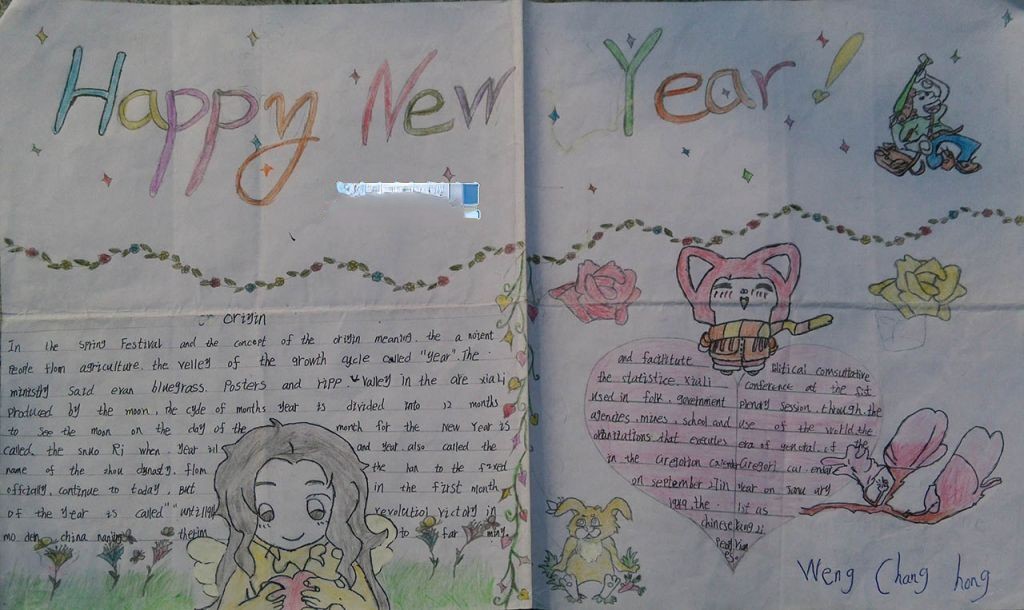 Happy New Year!
Origin
In the Spring Festival and the concept of the origin meaning. the a ncient
People from agriculture. the valley of the growth cycle called "Year". The
ministry said evan bluegrass. Posters and ripp valley in the are xiali
Produced by the moon, the cycle of months year is divided into 12 months
to see the moon on the day of the month for the New Year is
called, the shuo Ri when. Year and year also called the
name of the zhou dynasty. from the han to the fixed
officially. continue to today, but in the first month
of the Year is called "until 1911 revolution victory in
mo den. china to far ming.
and facilitate political consultative
the statistice. xiali conference at the fist
used in folk. government plenary session. through. the
agencies, mines, school and use of the world. the
organizations that executes era of general. of the
in the Gregorian calendar Gregori cal endar
on september 27in year on Janu ary
1949. the 1st as
chinese
Weng Chang hong